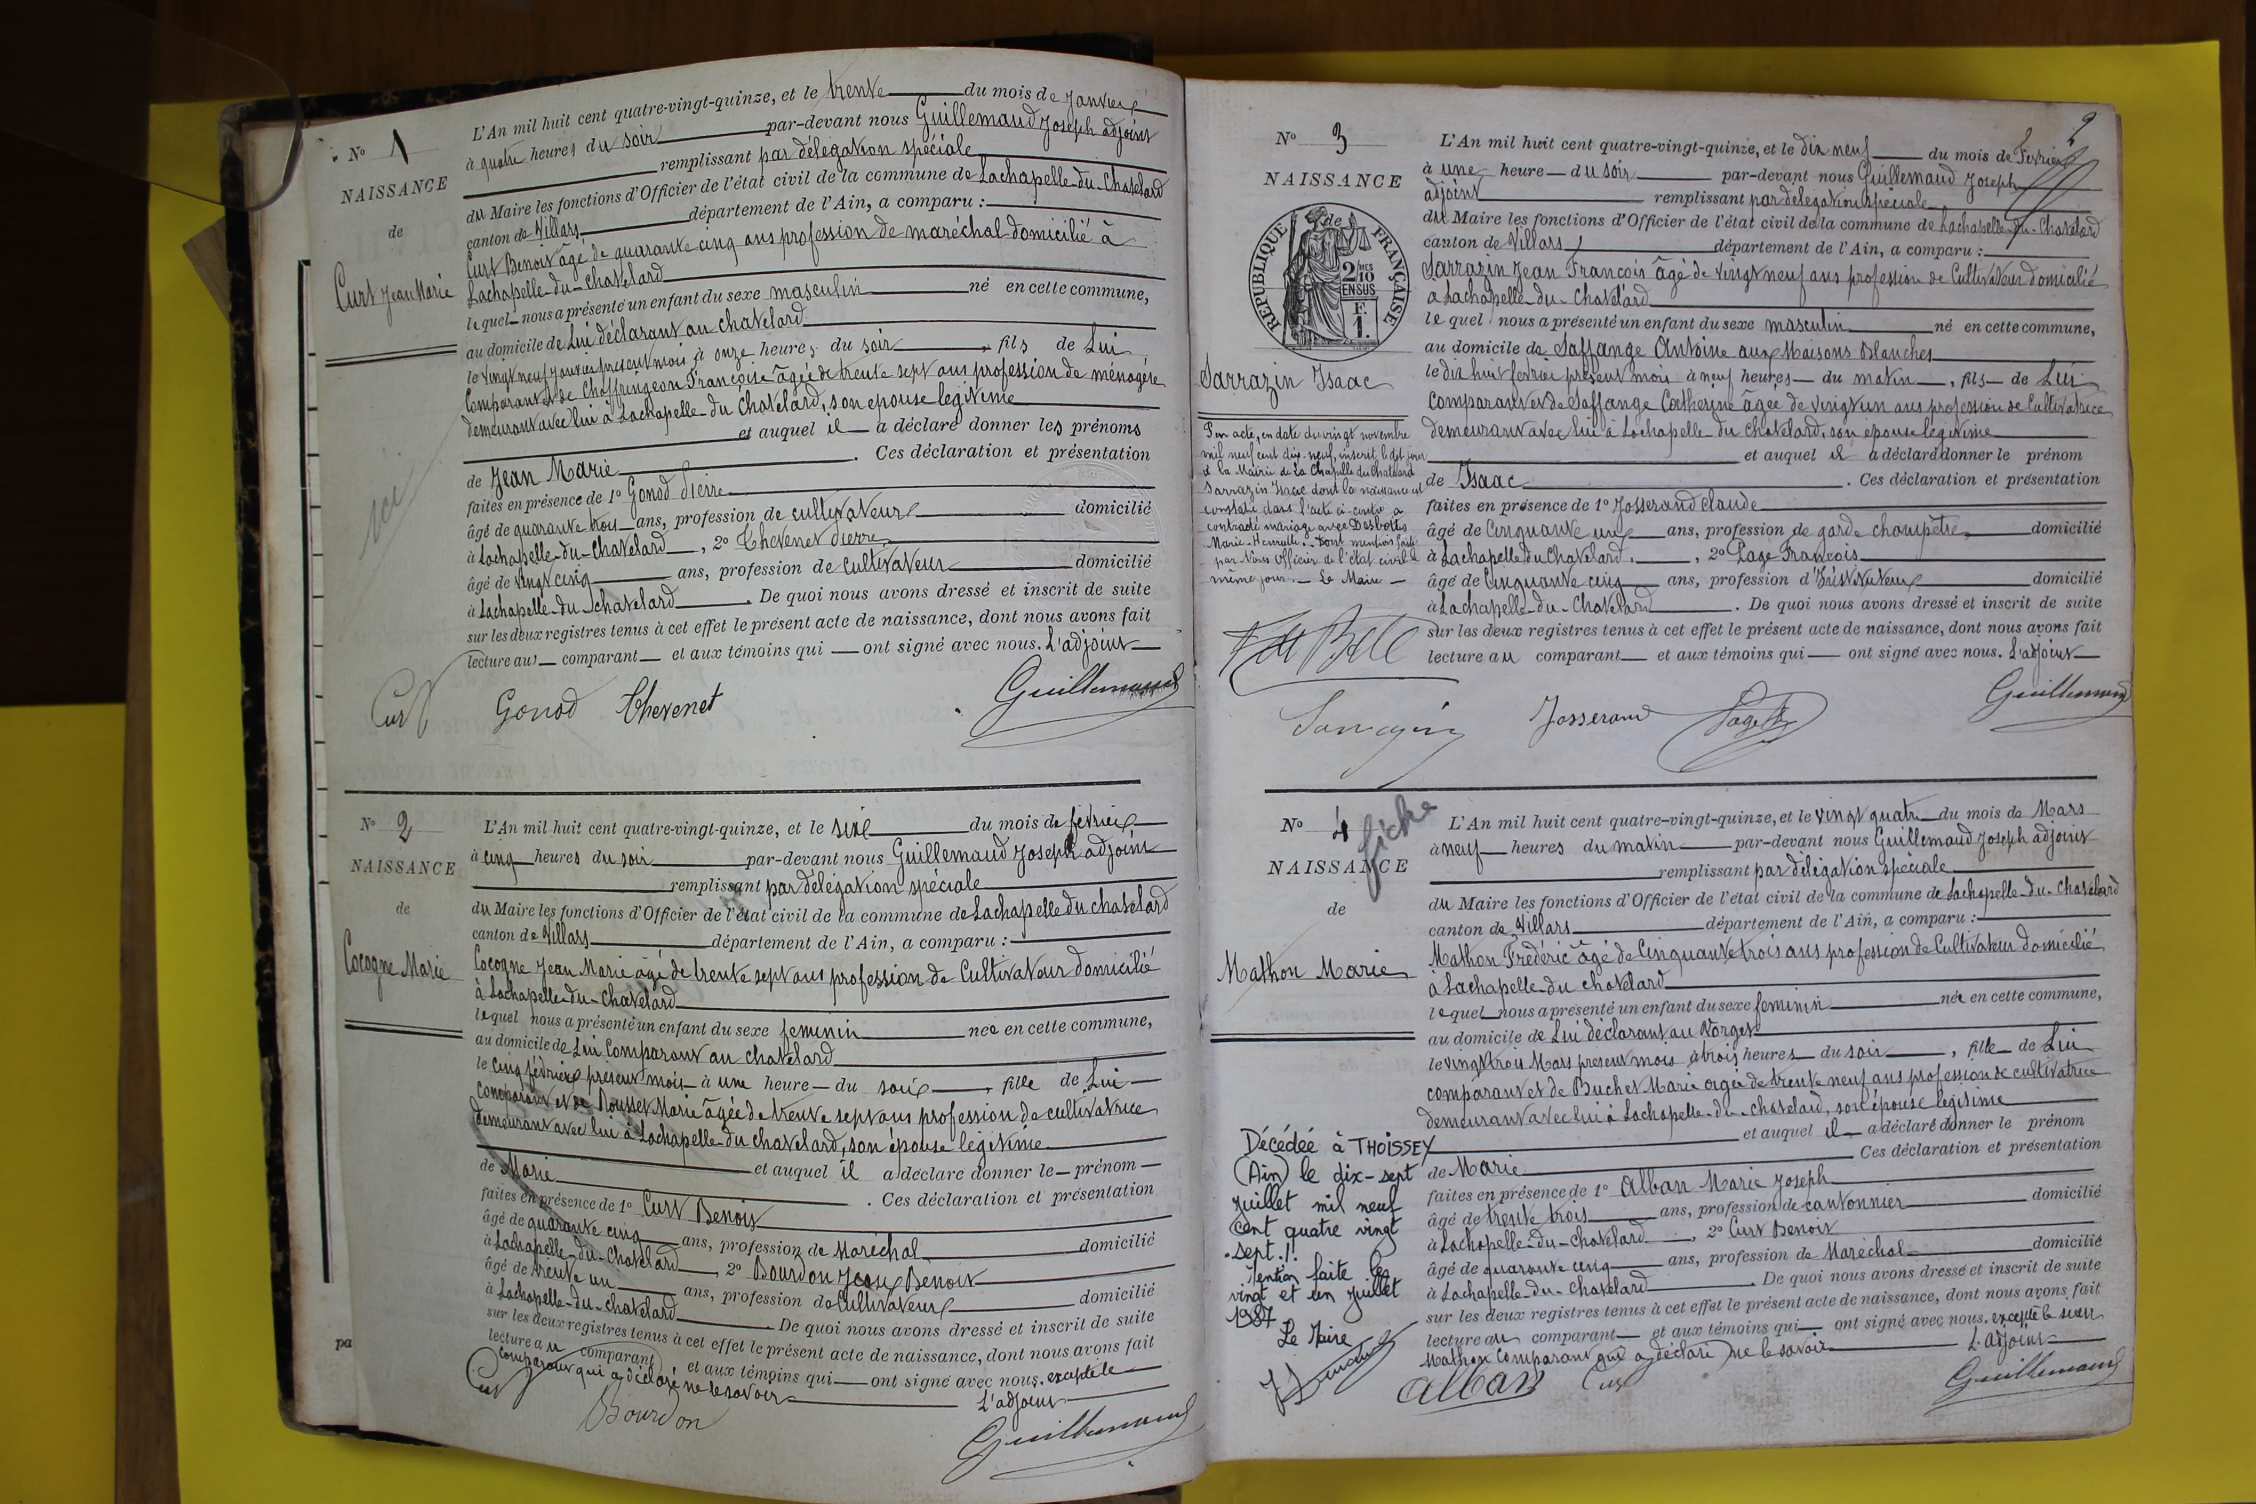 N° 1
NAISSANCE
de
Curt Jean Marie
L'An mil huit cent quatre-vingt-quinze, et le trente du mois de Janvier
à quatre heures du soir par-devant nous Guillemaud Joseph adjoint
remplissant par délégation spéciale
du Maire les fonctions d'Officier de l'état civil de la commune de Lachapelle-du-Chatelard
canton de Villars département de l'Ain, a comparu :
Curt Benoit âgé de quarante cinq ans profession de maréchal domicilié à
Lachapelle-du-Chatelard
lequel nous a présenté un enfant du sexe masculin né en cette commune,
au domicile de Lui déclarant au chatelard
le vingt neuf janvier présent mois à onze heures du soir, fils de Lui
Comparant et de Chaffringeon Françoise âgée de trente sept ans profession de ménagère
demeurant avec lui à Lachapelle-du-Chatelard, son epouse légitime
et auquel il a déclaré donner les prénoms
de Jean Marie. Ces déclaration et présentation
faites en présence de 1° Gonod Pierre
âgé de quarante trois ans, profession de cultivateur domicilié
à Lachapelle-du-Chatelard, 2° Chevenet Pierre
âgé de vingt cinq ans, profession de cultivateur domicilié
à Lachapelle-du-chatelard. De quoi nous avons dressé et inscrit de suite
sur les deux registres tenus à cet effet le présent acte de naissance, dont nous avons fait
lecture aux comparant et aux témoins qui ont signé avec nous. L'adjoint
Curt Gonod Chevenet Guillemaud
N° 2
NAISSANCE
de
Cocogne Marie
L'An mil huit cent quatre-vingt-quinze, et le six du mois de février
à cinq heures du soir par-devant nous Guillemaud Joseph adjoint
remplissant par délégation spéciale
du Maire les fonctions d'Officier de l'état civil de la commune de Lachapelle du chatelard
canton de Villars département de l'Ain, a comparu :
Cocogne Jean Marie âgé de trente sept ans profession de Cultivateur domicilié
à Lachapelle-du-Chatelard
lequel nous a présenté un enfant du sexe feminin née en cette commune,
au domicile de Lui Comparant au chatelard
le cinq février présent mois à une heure du soir, fille de Lui
Comparant et de Rousset Marie âgée de trente sept ans profession de cultivatrice
demeurant avec lui à Lachapelle-du chatelard, son épouse légitime
et auquel il a déclaré donner le prénom
de Marie. Ces déclaration et présentation
faites en présence de 1° Curt Benoit
âgé de quarante cinq ans, profession de Maréchal domicilié
à Lachapelle-du-Chatelard, 2° Bourdon Jean Benoit
âgé de trente un ans, profession de Cultivateur domicilié
à Lachapelle-du-chatelard. De quoi nous avons dressé et inscrit de suite
sur les deux registres tenus à cet effet le présent acte de naissance, dont nous avons fait
lecture au comparant et aux témoins qui ont signé avec nous. excepté le
comparant qui a déclaré ne le savoir L'adjoint
Curt Bourdon Guillemaud
pa
2
N° 3
NAISSANCE
de
RÉPUBLIQUE FRANÇAISE
2/10 EN SUS
F. 1.
Sarrazin Isaac
Par acte, en date du vingt novembre
mil neuf cent dix-neuf, inscrit le dit jour
à la Mairie de La Chapelle du Chatelard
Sarrazin Isaac dont la naissance est
constatée dans l'acte ci-contre a
contracté mariage avec Desbottes
Marie-Henriette. Dont mention faite
par Nous Officier de l'état civil le
même jour. Le Maire
L'An mil huit cent quatre-vingt-quinze, et le dix neuf du mois de Fevrier
à une heure du soir par-devant nous Guillemaud Joseph
adjoint remplissant par délégation spéciale
du Maire les fonctions d'Officier de l'état civil de la commune de Lachapelle-du-Chatelard
canton de Villars département de l'Ain, a comparu :
Sarrazin Jean François âgé de vingt neuf ans profession de Cultivateur domicilié
a Lachapelle-du-Chatelard
lequel nous a présenté un enfant du sexe masculin né en cette commune,
au domicile de Saffange Antoine aux Maisons Blanches
le dix huit fevrier présent mois à neuf heures du matin, fils de Lui
Comparant et de Saffange Catherine âgée de vingt un ans profession de Cultivatrice
demeurant avec lui à Lachapelle du Chatelard, son epouse légitime
et auquel il a déclaré donner le prénom
de Isaac. Ces déclaration et présentation
faites en présence de 1° Josserand Claude
âgé de Cinquante un ans, profession de garde champêtre domicilié
à Lachapelle du Chatelard, 2° Page François
âgé de Cinquante cinq ans, profession d'Instituteur domicilié
à Lachapelle-du-Chatelard. De quoi nous avons dressé et inscrit de suite
sur les deux registres tenus à cet effet le présent acte de naissance, dont nous avons fait
lecture au comparant et aux témoins qui ont signé avec nous. L'adjoint
Sarrazin Josserand Page Guillemaud
N° 4
fiche
NAISSANCE
de
Mathon Marie
Décédée à THOISSEY
(Ain) le dix-sept
Juillet mil neuf
cent quatre vingt
sept.
Mention faite le
vingt et un Juillet
1987
Le Maire
L'An mil huit cent quatre-vingt-quinze, et le vingt quatre du mois de Mars
à neuf heures du matin par-devant nous Guillemaud Joseph adjoint
remplissant par délégation spéciale
du Maire les fonctions d'Officier de l'état civil de la commune de Lachapelle-du-Chatelard
canton de Villars département de l'Ain, a comparu :
Mathon Frédéric âgé de Cinquante trois ans profession de Cultivateur domicilié
à Lachapelle-du chatelard
lequel nous a présenté un enfant du sexe feminin née en cette commune,
au domicile de Lui déclarant au Vorget
le vingt trois Mars présent mois à trois heures du soir, fille de Lui
comparant et de Buchet Marie agée de trente neuf ans profession de cultivatrice
demeurant avec lui à Lachapelle-du-chatelard, son épouse légitime
et auquel il a déclaré donner le prénom
de Marie Ces déclaration et présentation
faites en présence de 1° Alban Marie Joseph
âgé de trente trois ans, profession de cantonnier domicilié
à Lachapelle-du-Chatelard, 2° Curt Benoit
âgé de quarante cinq ans, profession de Maréchal domicilié
à Lachapelle-du-chatelard. De quoi nous avons dressé et inscrit de suite
sur les deux registres tenus à cet effet le présent acte de naissance, dont nous avons fait
lecture au comparant et aux témoins qui ont signé avec nous. excepté le sieur
Mathon comparant qui a déclaré ne le savoir L'adjoint
Alban Curt Guillemaud